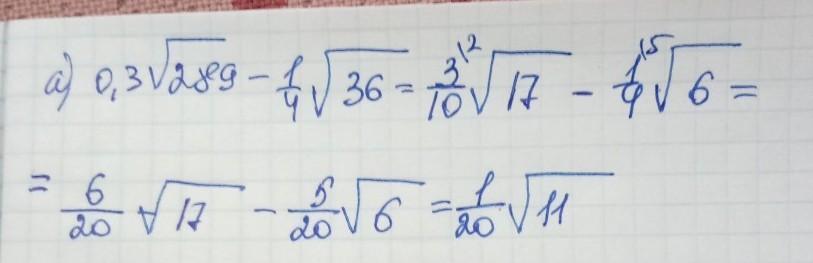 а) 0,3√289 - 1/4 √36 = 3\2/10 √17 - 1\5/4 √6 =
= 6/20 √17 - 5/20 √6 = 1/20 √11